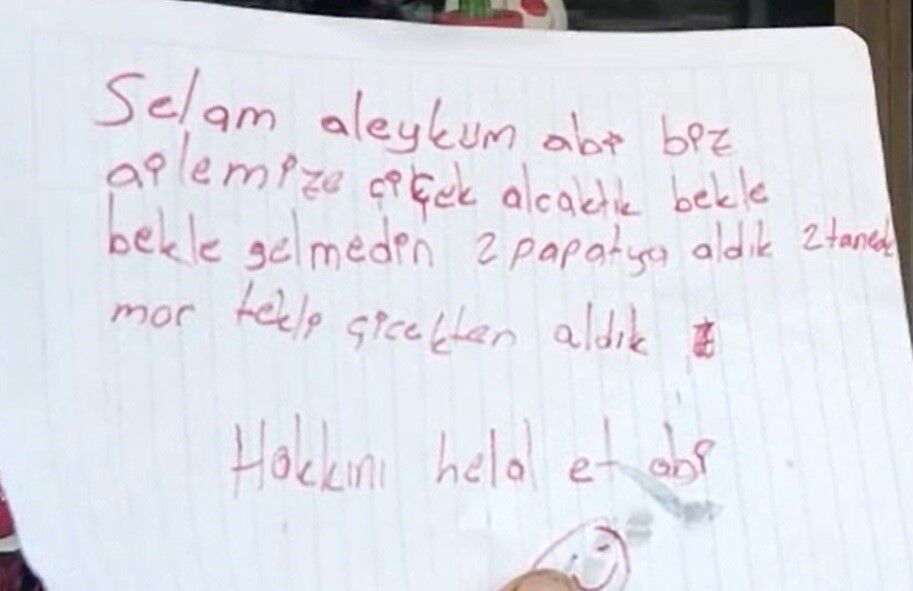 Selam aleykum abi biz
ailemize çiçek alcaktik bekle
bekle gelmedin 2 papatya aldık 2 tanede
mor tekli çicekten aldık
Hakkını helal et abi